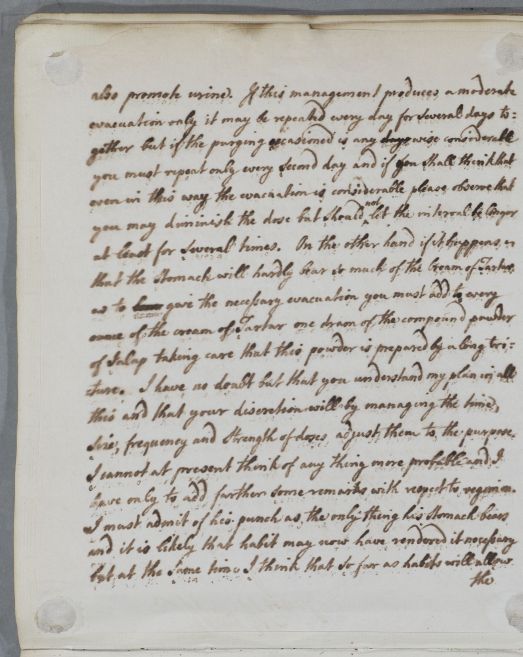 also promote urine. If this management produces a moderate
evacuation only it may be repeated every day for several days to:
gether but if the purging occasioned is any wise considerable
you must repeat only every second day and if you shall think that
even in this way the evacuation is considerable please observe that
you may diminish the dose but should not let the interval be longer
at least for several times. On the other hand if it happens,
that the Stomach will hardly bear so much of the Cream of Tartar,
as to give the necessary evacuation you must add to every
ounce of the cream of Tartar one dram of the compound powder
of Jalap taking care that this powder is prepared by a long tri:
ture. I have no doubt but that you understand my plan in all
this and that your discretion will by managing the time,
size, frequency and strength of doses adjust them to the purpose.
I cannot at present think of any thing more probable and I
have only to add farther some remarks with respect to regimen.
I must admit of his punch as the only thing his stomach bears
and it is likely that habit may now have rendered it necessary
but at the same time I think that so far as habits will allow
the